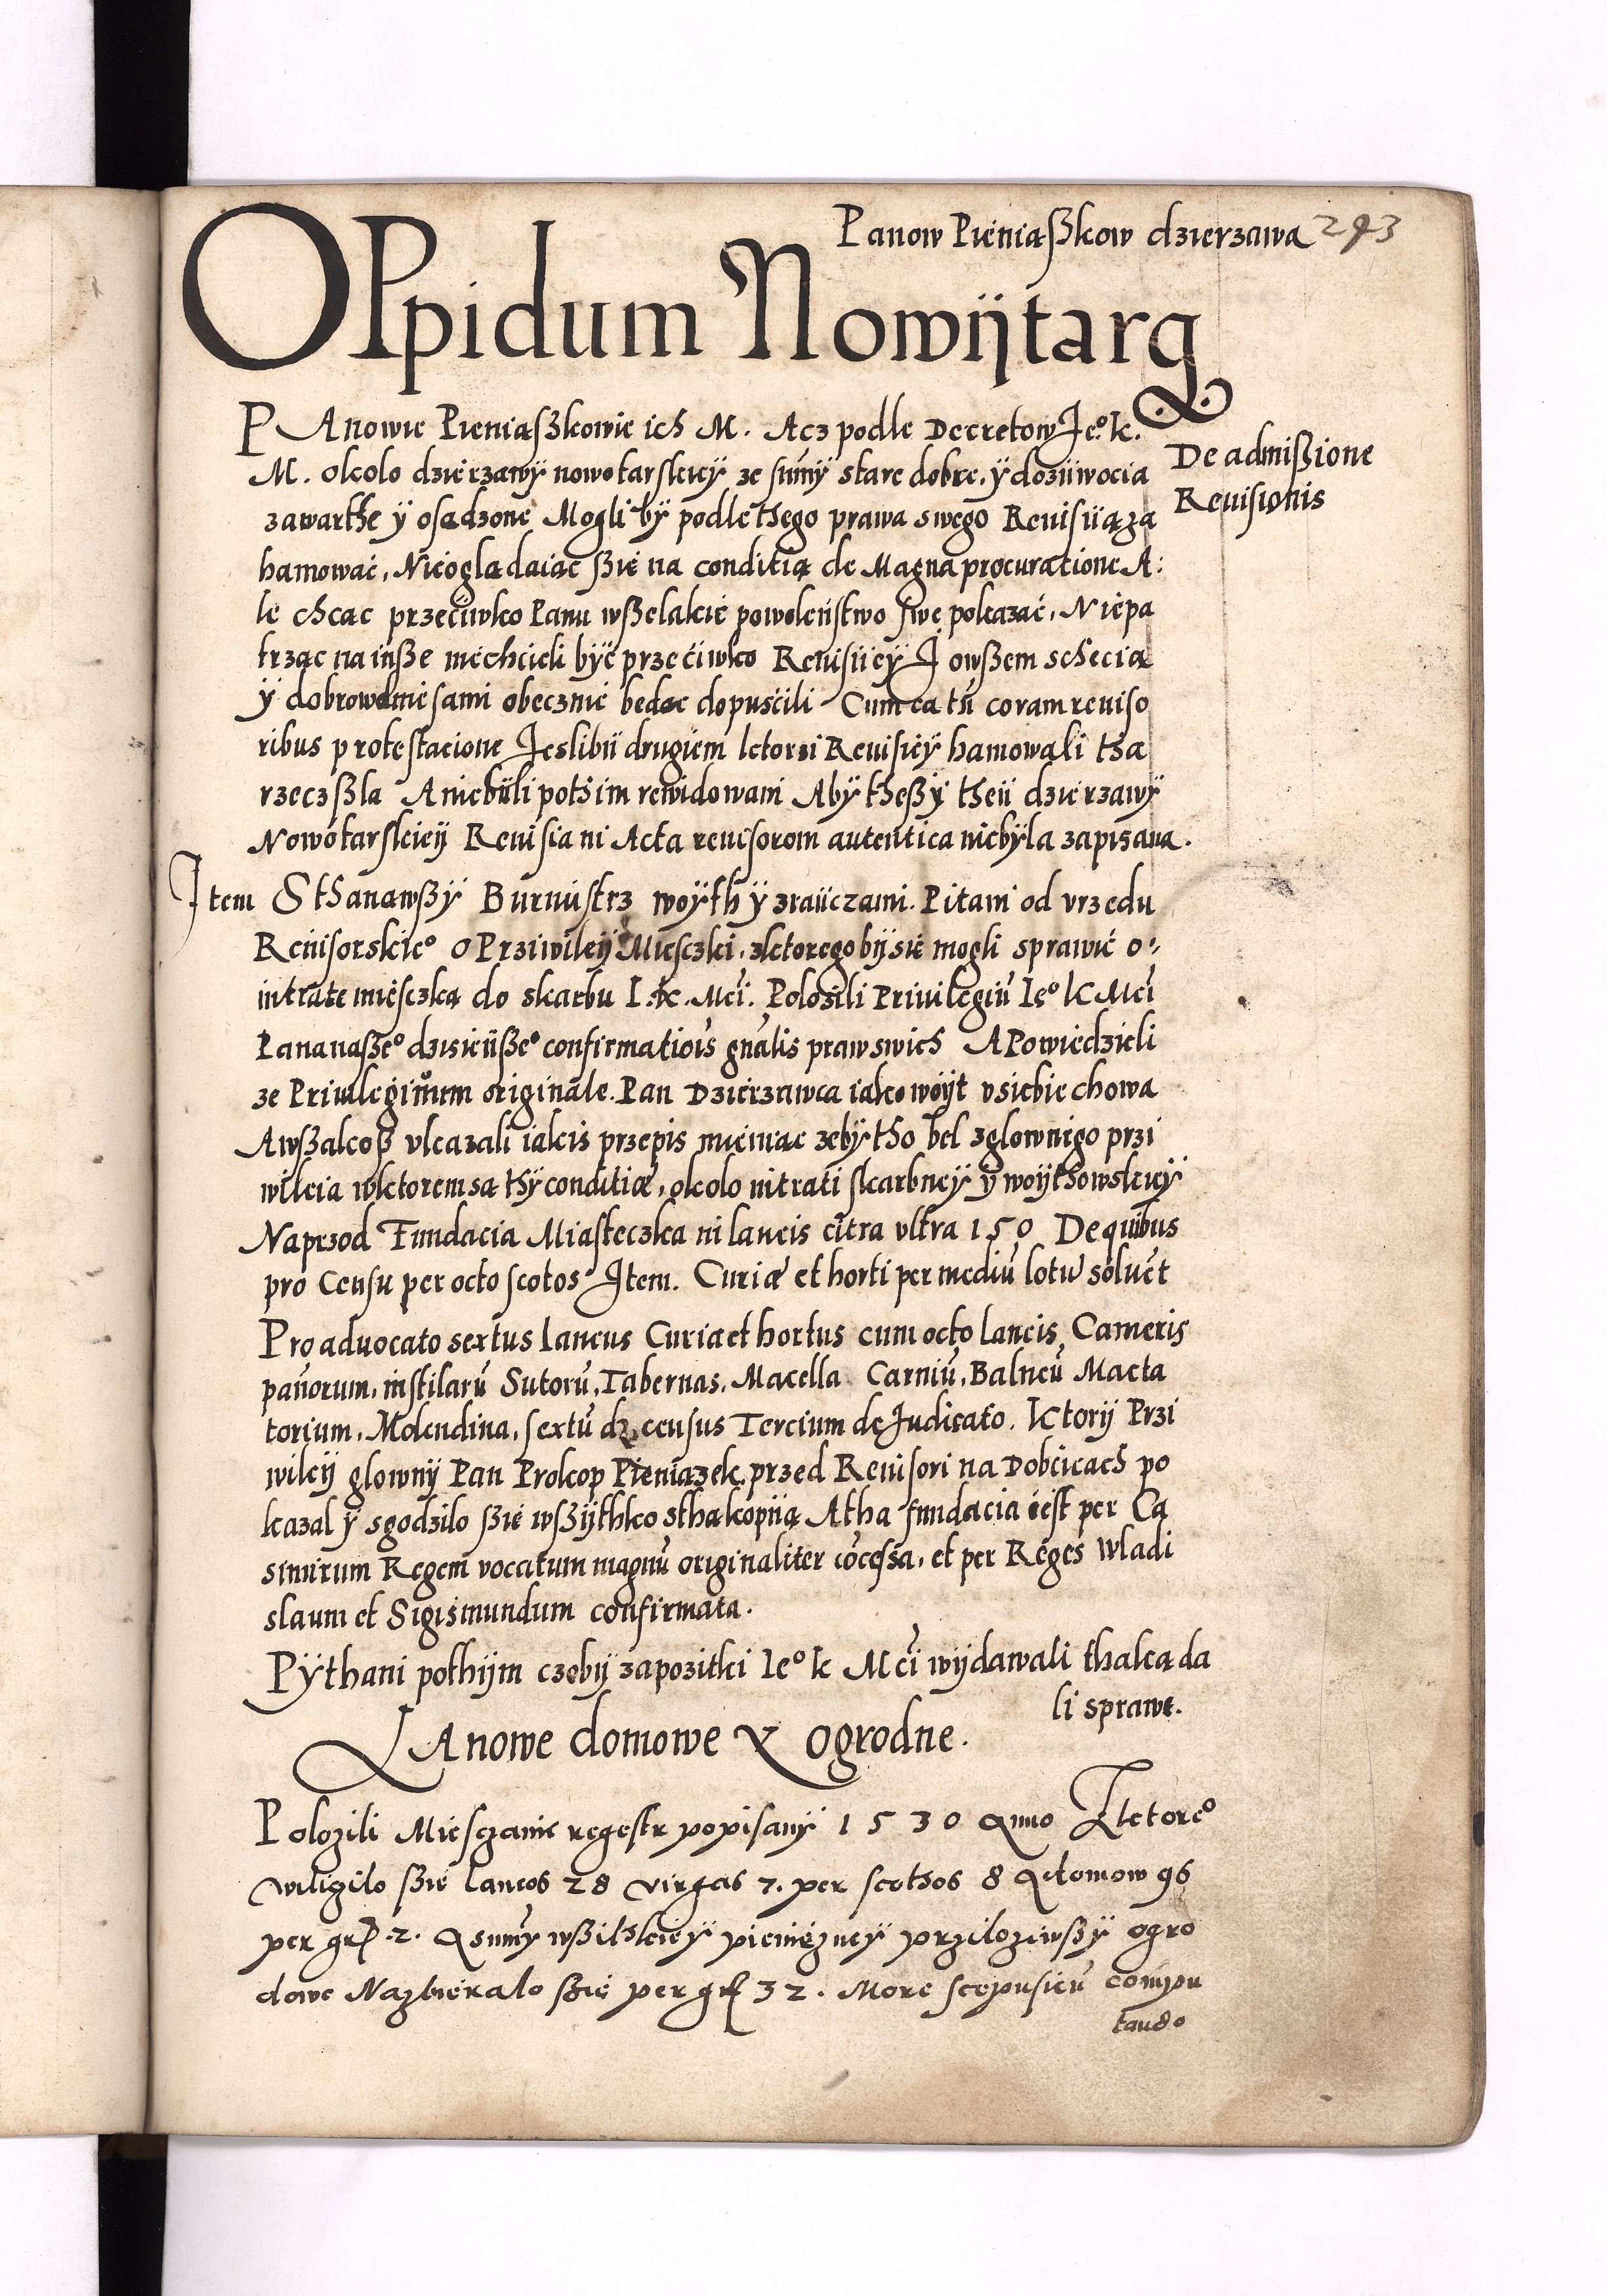 Panow Pieniaßkow dzierzawa 243
OPpidum Nowÿtarg
PAnowie Pieniaßkowie ich M. Acz podle Decretow Je.º k.
De admißione
Reuisionis
M. około dzierzawÿ nowotarskieÿ ze sumÿ stare dobre. ÿ doziiwocia
zawarthe ÿ osadzone Mogli bÿ podle thego prawa swego Reuisiią za
hamować, Nieogladaiąc ßie na conditią de Magna procuratione A:
le chcąc przeciiwko Panu wßelakie powoleństwo swe pokazać, Niepa
trząc na inße niechcieli być przeciiwko Reuisiieÿ J owßem schecią
ÿ dobrowolnie sami obecznie bedąc dopuscili Cum ea tn̄ coram reuiso
ribus protestacione Jeslibii drugiem ktorzi Reuisieÿ hamowali tha
rzecz ßla A niebÿli pothim rewidowani Abÿ theßÿ theii dzierzawÿ
Nowotarskieÿ Reuisia ni Acta reuisorom autentica niebÿla zapisana.
Item Sthanawßÿ Burmistrz woÿth ÿ zraiiczami. Pitani od vrzedu
Reuisorskieº o Prziwileÿ Miesczki, zktorego bÿ sie mogli sprawić o
intrate miesczką do skarbu I. K. Mci. Polozili Priuilegiū Ieº K Mci
Pana naßeº dzisieiißeº confirmatiois gnālis praw swich A Powiedzieli
ze Priuilegium originale. Pan Dzierzawca iako woÿt v siebie chowa
A wßakoß vkazali iakis przepis mieniac zebÿ tho bel z glownigo przi
wileia w ktorem sa thÿ conditiæ, okolo intrati skarbneÿ ÿ woÿthowskieÿ
Naprzod Fundacia Miasteczka in laneis citra vltra 150 De quibus
pro Censu per octo scotos Item. Curiæ et horti per mediū lotū soluēt
Pro aduocato sextus laneus Curia et hortus cum octo laneis Cameris
panorum, institarū Sutorū, Tabernas, Macella Carniū, Balneū Macta
torium, Molendina, sextū dz census Tercium de Judicato. Ktorÿ Przi
wileÿ glownÿ Pan Prokop Pieniazek przed Reuisori na Dobcicach po
kazal ÿ sgodzilo ßie wßÿthko stha kopiią A tha fundacia iest per Ca
simirum Regem vocatum magnū originaliter cōcessa, et per Reges Wladi
slaum et Sigismundum confirmata.
Pÿthani pothÿm czobÿ za pozitki Ieº k Mci wÿdawali thaką da
li sprawe.
LAnowe domowe Y ogrodne.
Polozili Miesczanie regestr popisanÿ 1530 Anno Z ktoreº
wiligilo ßie laneos 28 virgas 7. per scothos 8 A domow 96
per gr. 2. A sumÿ wßithkieÿ pieniezneÿ prziloziwßÿ ogro
dowe Nazbieralo ßie per gr 32. More scepusieū compu
tando